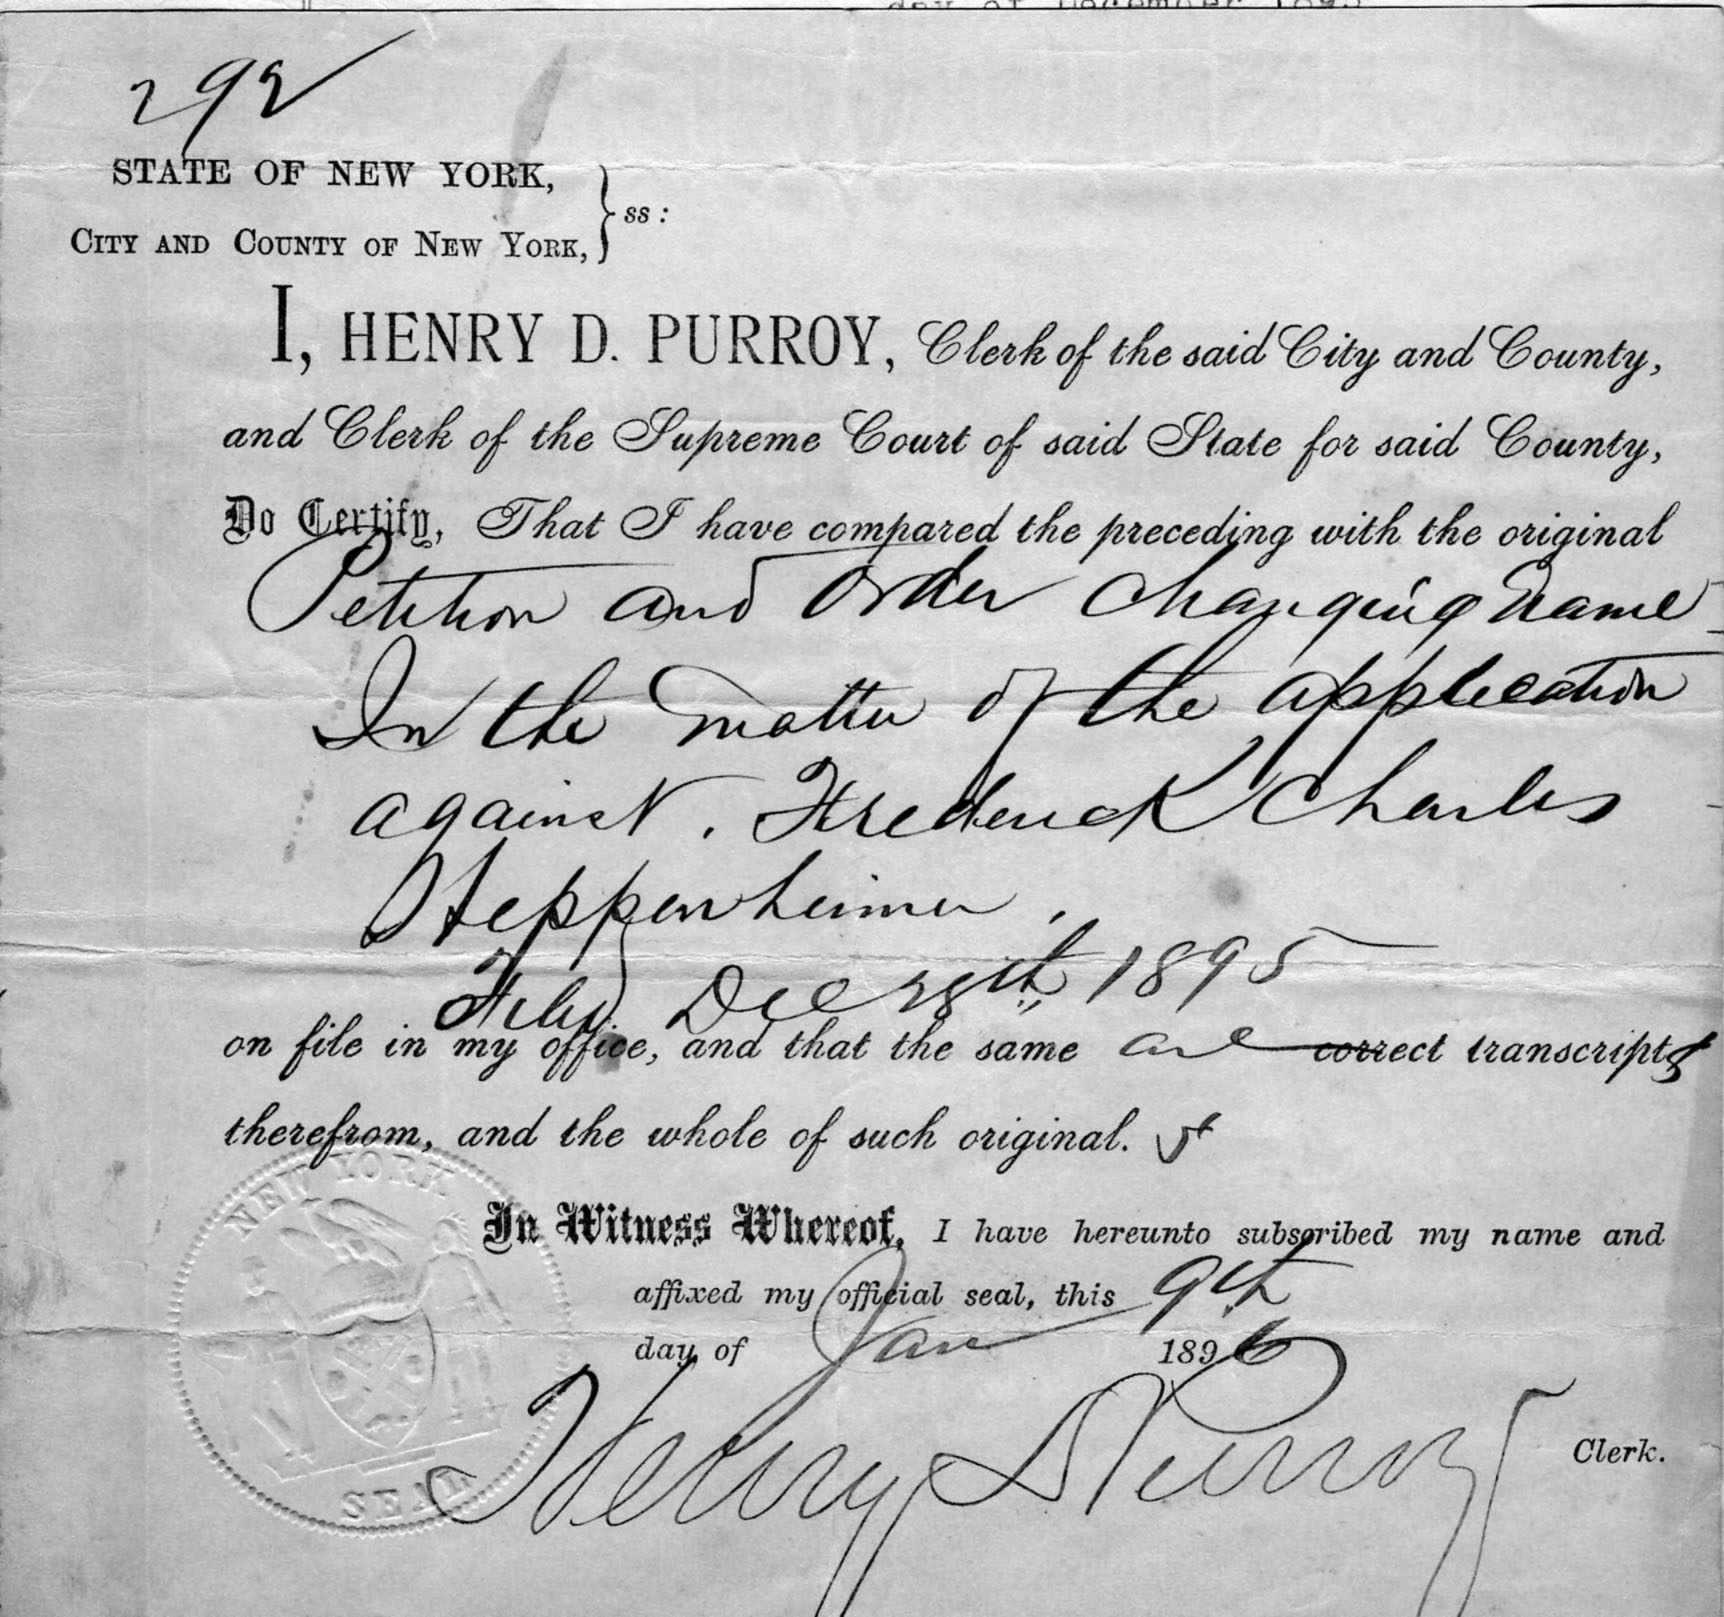 day of December 1895
292
STATE OF NEW YORK,
CITY AND COUNTY OF NEW YORK, } ss:
I, HENRY D. PURROY, Clerk of the said City and County,
and Clerk of the Supreme Court of said State for said County,
Do Certify, That I have compared the preceding with the original
Petition and order changing name
In the matter of the application
against. Frederick Charles
Heppenheimer.
Filed Dec 28th 1895
on file in my office, and that the same are correct transcripts
therefrom, and the whole of such original.
In Witness Whereof, I have hereunto subscribed my name and
affixed my official seal, this 9th
day of Jan 1896
Henry D Purroy Clerk.
NEW YORK
SEAL